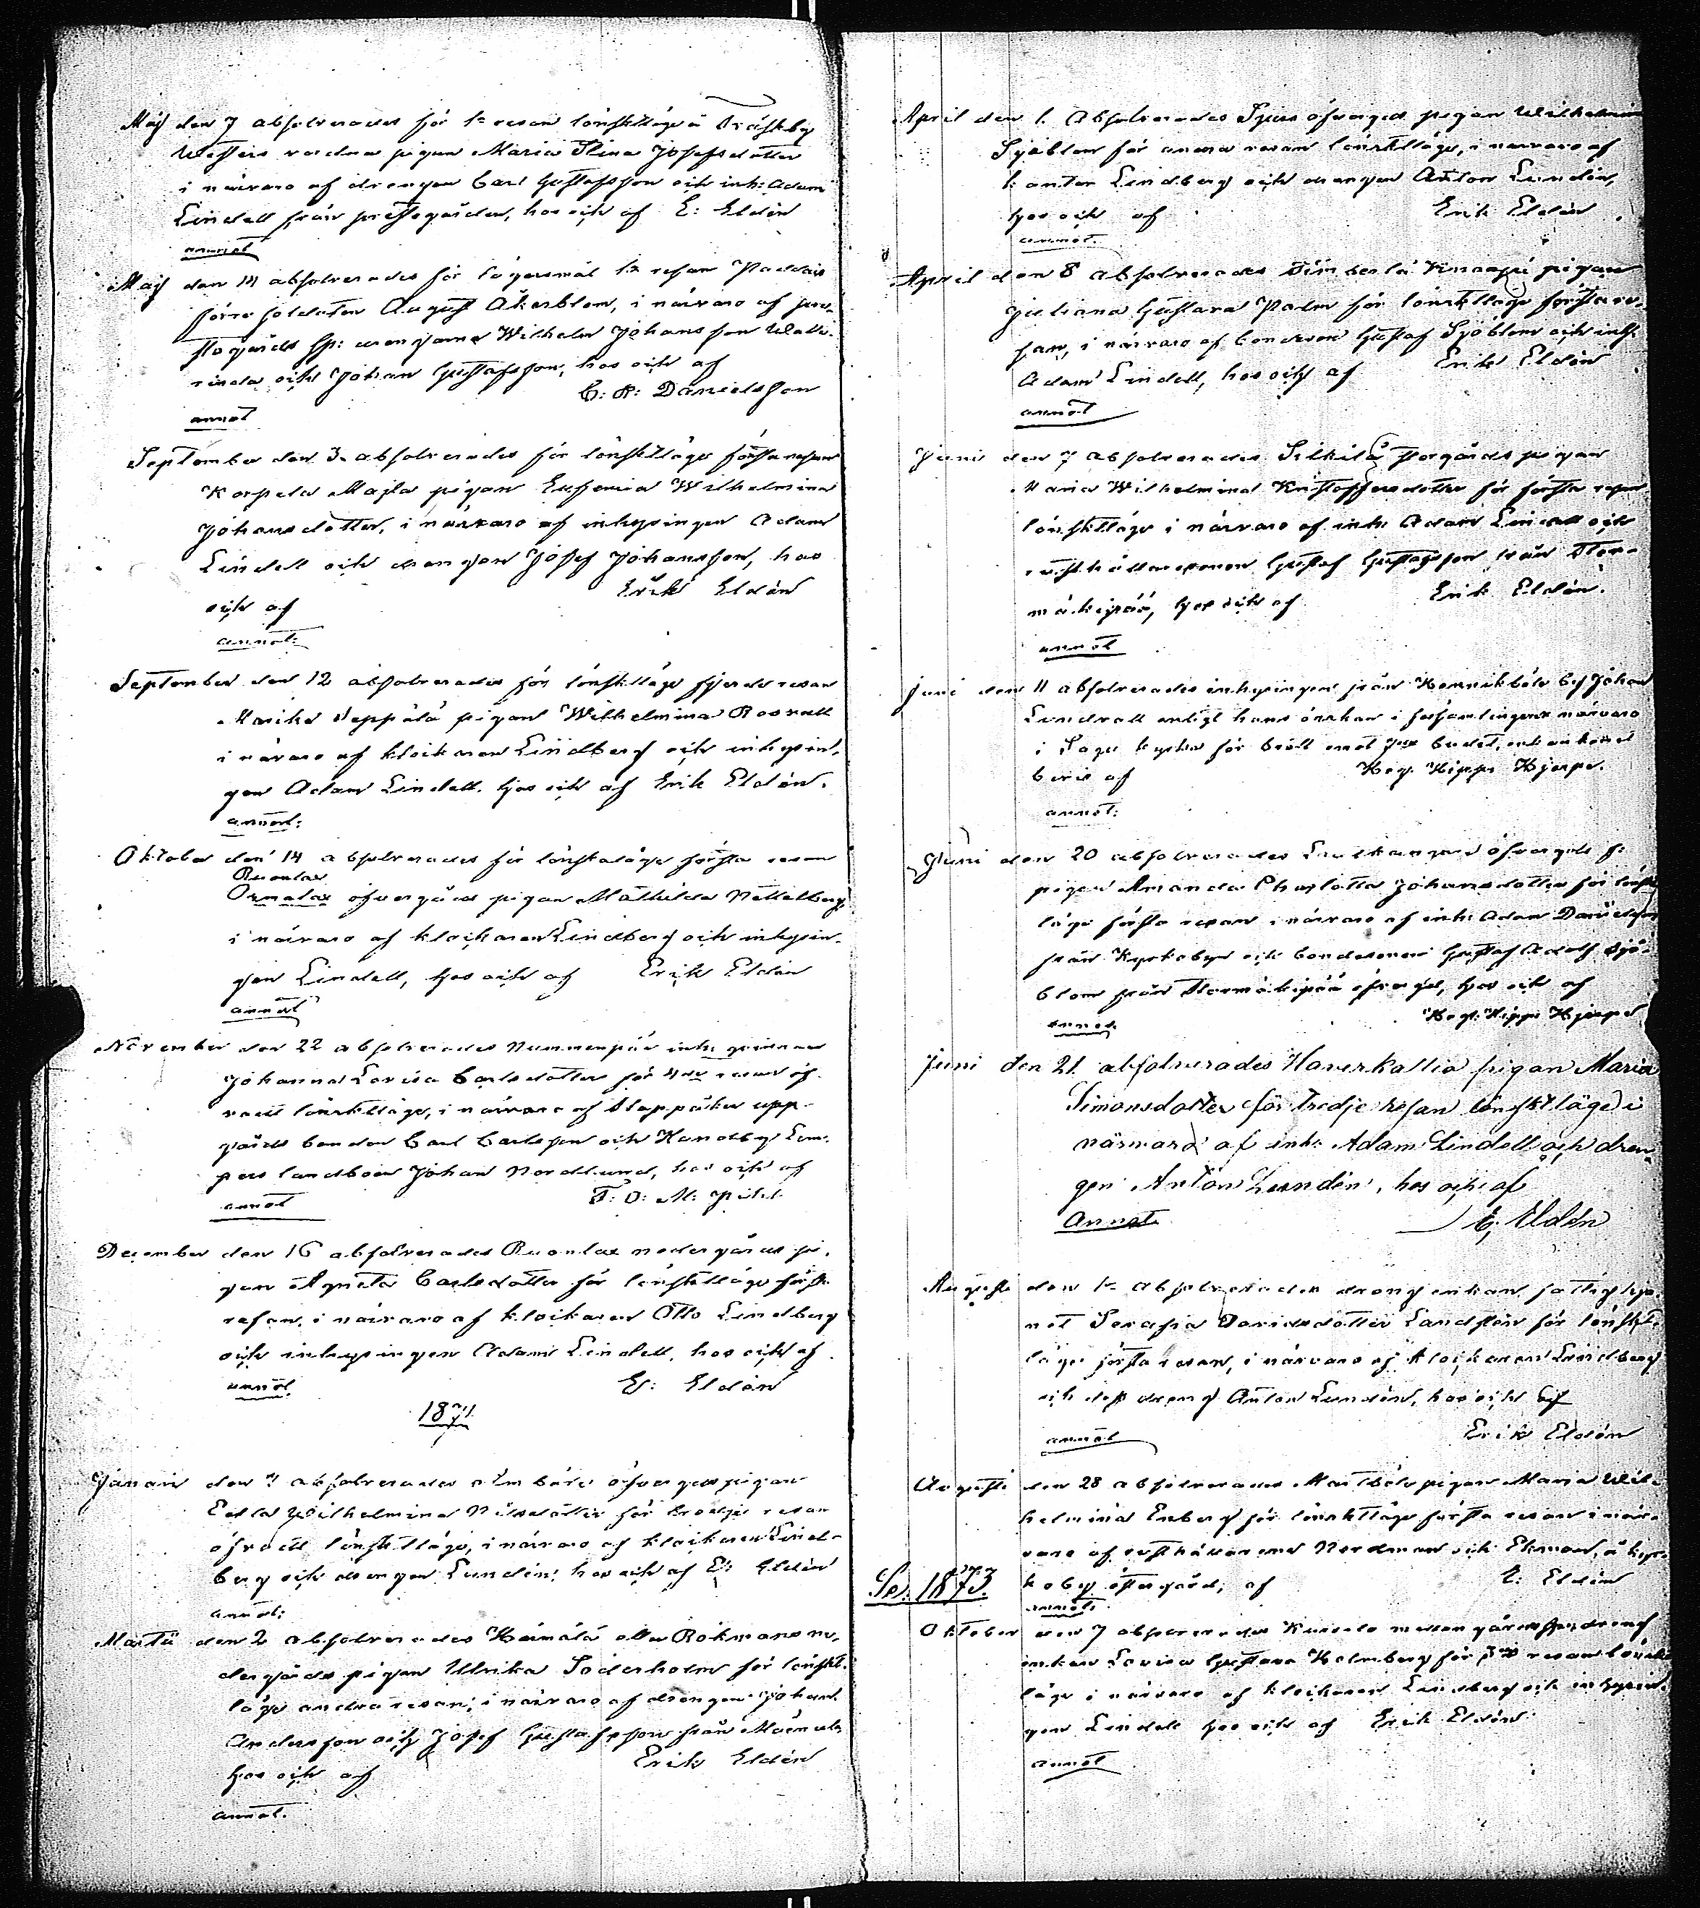 Maj den 7 absolverades för 1a resan lönskläge å Träskby
Westers rudna pigan Maria Stina Josefsdotter
i närvaro af drengen Carl Gustafsson och inh: Adam
Lindell från prestegården, hos och af E: Eldén
annot
Maj den 14 absolverades för lägersmål 1a resan Paddais
förre soldaten August Åkerblom, i närvaro af pre-
stegårds drengarne Wilhelm Johansson Walle-
rinda och Johan Gustafsson, hos och af
C: R: Danielsson
annot
September den 3. absolverades för lönskläge första resan
Korpela Majla pigan Eufemia Wilhelmina
Johansdotter, i närvaro af inhysingen Adam
Lindell och drengen Josef Johansson, hos
och af Erik Eldén
annot:
September den 12 absolverades för lönskläge fjerde resan
Marika Seppälä pigan Wilhelmina Rosvall
i närvaro af klockaren Lindberg och inhysin-
gen Adam Lindell. hos och af Erik Eldén.
annot:
Oktober den 14 absolverades för lönskaläge första resan
Ruonlax
Ornalax öfvergårds pigan Mathilda Nettelberg
i närvaro af klockaren Lindberg och inhysin-
gen Lindell, hos och af Erik Eldén
annot
November den 22 absolverades Nummenpää inh: qvinnan
Johanna Lovisa Carlsdotter för 4de resan öf-
vadt lönskläge, i närvaro af Stappåker upp-
gårds bonden Carl Carlsson och Handby Lem-
pers landboen Johan Nordlund, hos och af
annot
December den 16 absolverades Ruonlax nedergårds pi-
gan Agneta Carlsdotter för lönskläge förste
resan, i närvaro af klockaren Otto Lindberg
och inhysingen Adam Lindell, hos och af
annot. E: Eldén
1871
Januari den 7 absolverades öfvergårds pigan
Edla Wilhelmina Nilsdotter för tredje resan
öfvadt lönskläge, i närvaro af klockaren Lind-
berg och drengen Lundén, hos och af E: Eldén
annot:
Martii den 2 absolverades Heimälä eller Bökmans ne-
dergårds pigan Ulrika Söderholm för lönsk-
läge andra resan; i närvaro af drengen Johan
Andersson och Josef Gustafsson från
hos och af Erik Eldén
annot.
April den 1. absolverades öfvergårds pigan Wilhelmina
Sjöblom för andra resan lönskläge, i närvaro af
kantor Lindberg och drengen Anton Lundén,
hos och af Erik Eldén
annot.
April den 8 absolverades Kinaapä pigan
Juliana Gustava Palm för lönskläge första re-
san, i närvaro af bondeson Gustaf Sjöblom och inh:
Adam Lindell, hos och af Erik Eldén
annot
Juni den 7 absolverades Silkilä storgårds pigan
Maria Wilhelmina Kristoffersdotter för första resan
lönskläge i närvaro af inh: Adam Lindell och
rusthållaresonen Gustaf Gustafsson från Stor-
mäkipää, hos och af Erik Eldén.
annot
Juni den 11 absolverades inhysingen från Hennikböle by Johan
Lindvall enligt hans önskan i församlingens närvaro
i Sagu kyrka för brott emot budet,
beris af Heg. Hipp. Hjerpe.
annot:
Juni den 20 absolverades öfvergårds
pigan Amanda Charlotta Johansdotter för lönsk-
läge första resan i närvaro af inh: Adam Danielsson
från Kyrkoby och bondesonen Gustaf Adolf Sjö-
blom från Stormäkipää öfvergd, hos och af
annot. Heg. Hipp. Hjerpe
Juni den 21. absolverades Haverkallio pigan Maria
Simonsdotter för tredje resan lönskläge i
närvaro af inh: Adam Lindell och dren-
gen Anton Lundén, hos och af
Annot. E. Eldén
Augusti den 1a absolverades drengenkan, fattighjo-
net Serafia Davidsdotter Landström för lönsk-
läge första resan, i närvaro af klockaren Lindberg
och dess dreng Anton Lundén, hos och af
annot Erik Eldén
Augusti den 28 absolverades pigan Maria Wil-
helmina Enberg för lönskläge första resan i när-
varo af rusthållarena Nordman och Ekman, å kyr-
koby öfvergård, af E: Eldén
Se. 1873.
annot.
Oktober den 7 absolverades
enkan Lovisa Gustava Holmberg för resan lönsk-
läge i närvaro af klockaren Lindberg och inhysin-
gen Lindell hos och af Erik Eldén.
annot